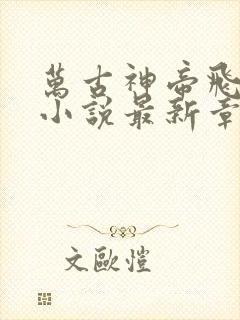 萬古神帝飛
小說最新章
文歐愷